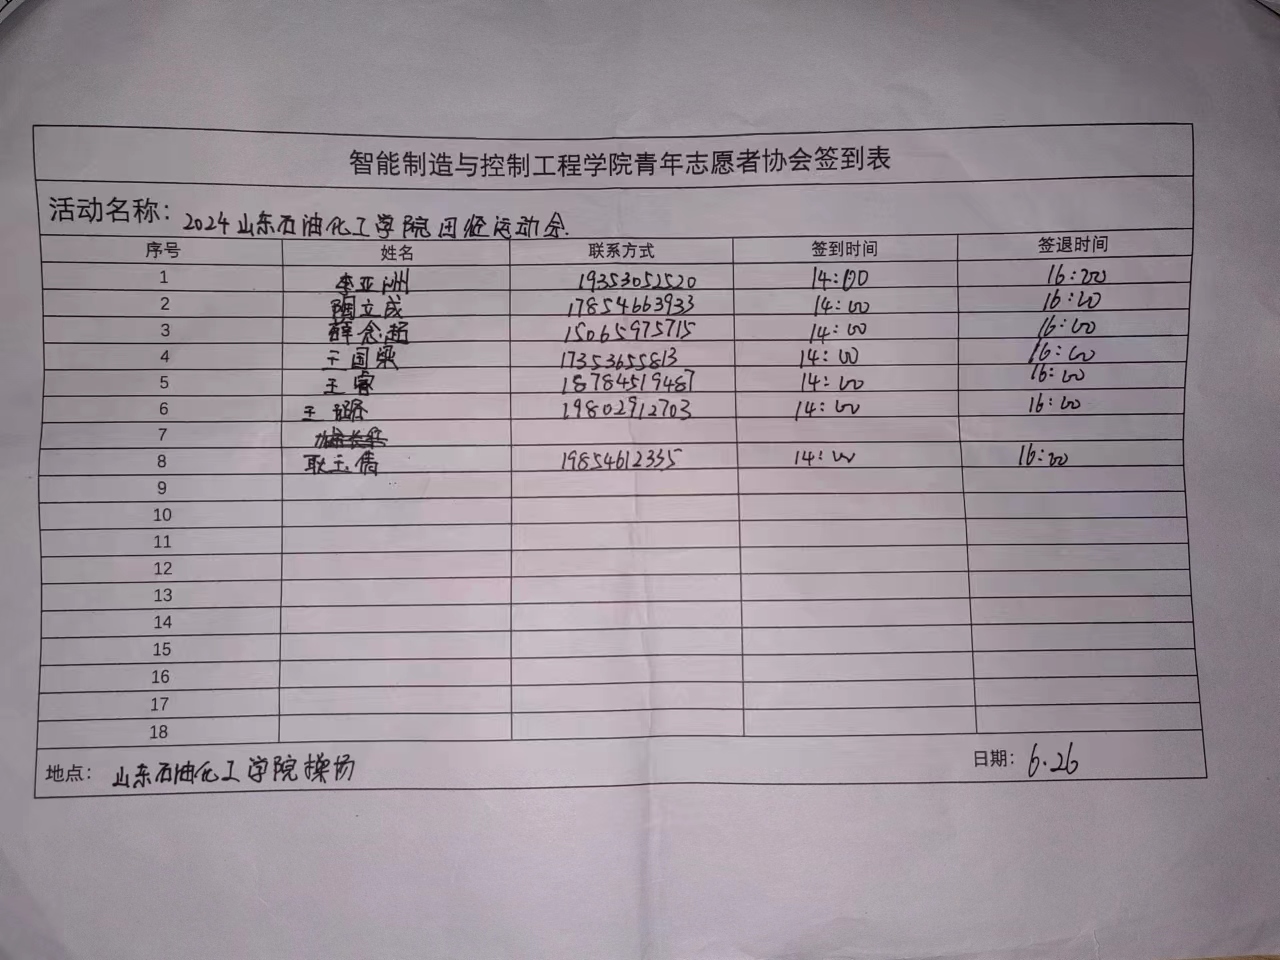 智能制造与控制工程学院青年志愿者协会签到表
活动名称：2024山东石油化工学院田径运动会.
序号 姓名 联系方式 签到时间 签退时间
1 李亚洲 19353052520 14:00 16:00
2 陶立成 17854663933 14:00 16:00
3 薛念超 15065975715 14:00 16:00
4 王国梁 17353655813 14:00 16:00
5 王睿 18784519487 14:00 16:00
6 王 19802912703 14:00 16:00
7
8 耿玉倩 19854612335 14:00 16:00
9
10
11
12
13
14
15
16
17
18
地点：山东石油化工学院操场 日期：6.26